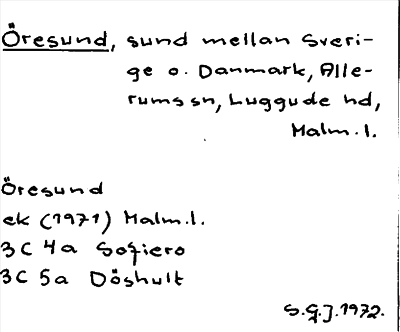 Öresund, sund mellan Sveri-
ge o. Danmark, Alle-
rums sn, Luggude hd,
Malm.l.
Öresund
ek (1971) Malm.l.
3C 4a Sofiero
3C 5a Döshult
S.G.J. 1972.